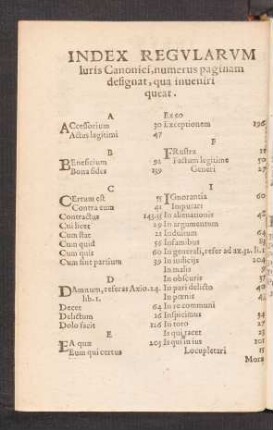 INDEX REGVLARVM
Iuris Canonici, numerus paginam
designat, qua inueniri
queat.
A
ACcessorium 30
Actus legitimi 47
B
BEneficium 52
Bona fides 159
C
CErtum est 55
Contra eum 41
Contractus
Cui licet 19
Cum sint 21
Cum quid 55
Cum quis 60
Cum sint partium 59
D
DAmnum, referas Axio. 14.
lib. 1.
Decet 64
Delictum 26
Dolo facit 116
E
EA quæ 105
Eum qui certus 21
Ex eo
Exceptionem 196
F
FRustra 11
Factum legitime 50
Generi 27
I
IGnorantia 60
Imputari
In alienationis 48
In argumentum
Inducitum 64
Infamibus
In generali, refer ad
In iudicijs 204
In malis
In obscuris 57
In pari delicto 40
In pœnis 45
In re communi
Inspicimus 54
In toto 27
Is qui tacet
Is qui in ius 101
Locupletari 15
Mora